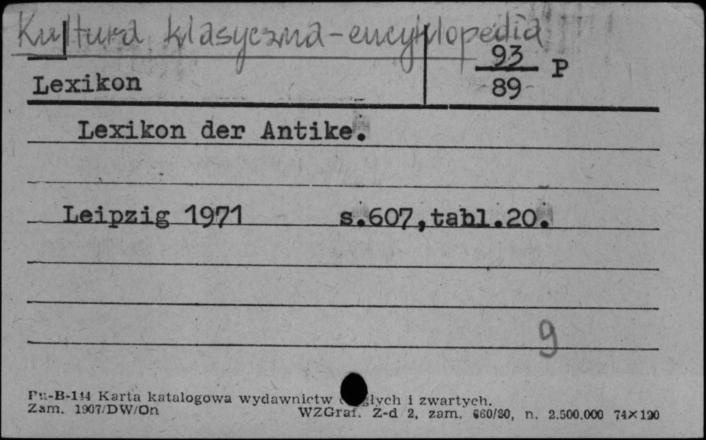 Kultura klasyczna-encyklopedia
93
89 P
Lexikon
Lexikon der Antike.
Leipzig 1971 s.607,tabl.20.
9
Pu-B-114 Karta katalogowa wydawnictw ciągłych i zwartych.
Zam. 1907/DW/On WZGraf. Z-d 2, zam. 660/80, n. 2.500.000 74×120